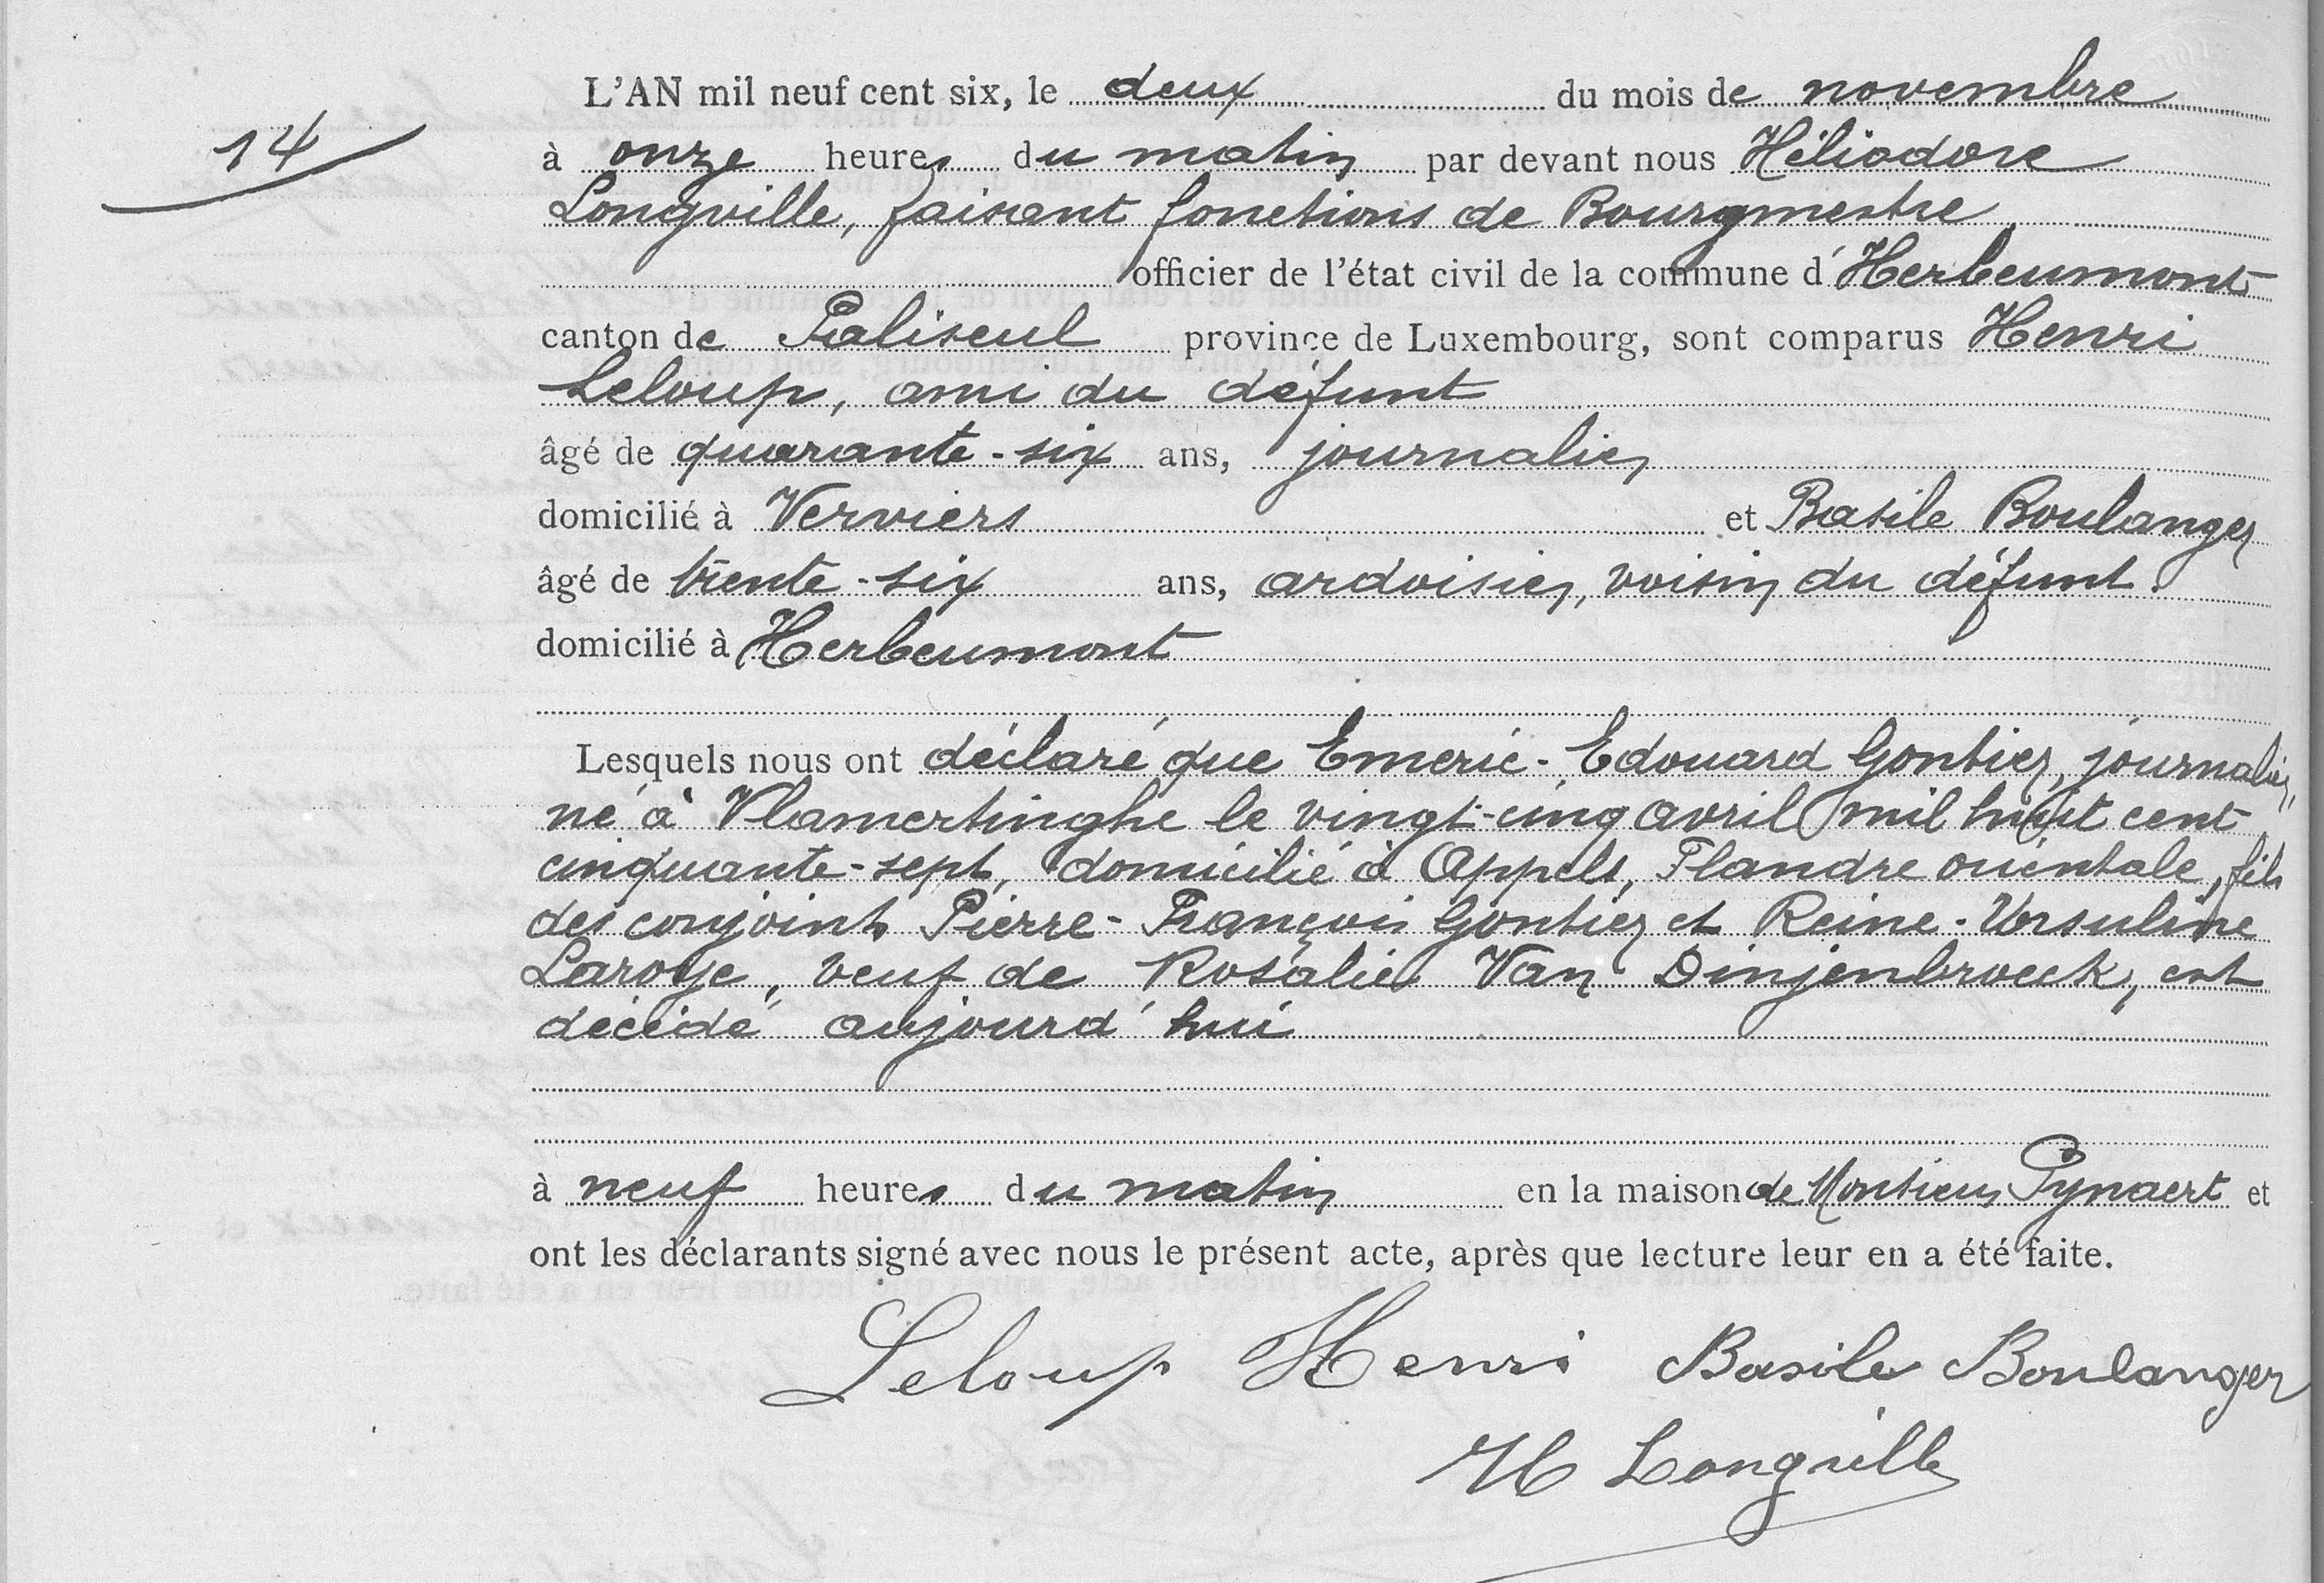 L'AN mil neuf cent six, le deux du mois de novembre
14
à onze heures du matin par devant nous Héliodore
Longville, faisant fonctions de Bourgmestre
officier de l'état civil de la commune d'Herbeumont
canton de Paliseul province de Luxembourg, sont comparus Henri
Leloup, ami du défunt
âgé de quarante-six ans, journalier
domicilié à Verviers et Basile Boulanger
âgé de trente-six ans, ardoisier, voisin du défunt
domicilié à Herbeumont
Lesquels nous ont déclaré que Emeric-Edouard Gontier, journalier,
né à Vlamertinghe le vingt-cinq avril mil huit cent
cinquante-sept, domicilié à Appels, Flandre orientale, fils
des conjoints Pierre-François Gontier et Reine-Ursuline
Laroye, veuf de Rosalie Van Dinjenbroeck, est
décédé aujourd'hui
à neuf heures du matin en la maison de Monsieur Pynaert et
ont les déclarants signé avec nous le présent acte, après que lecture leur en a été faite.
Leloup Henri Basile Boulanger
H Longville